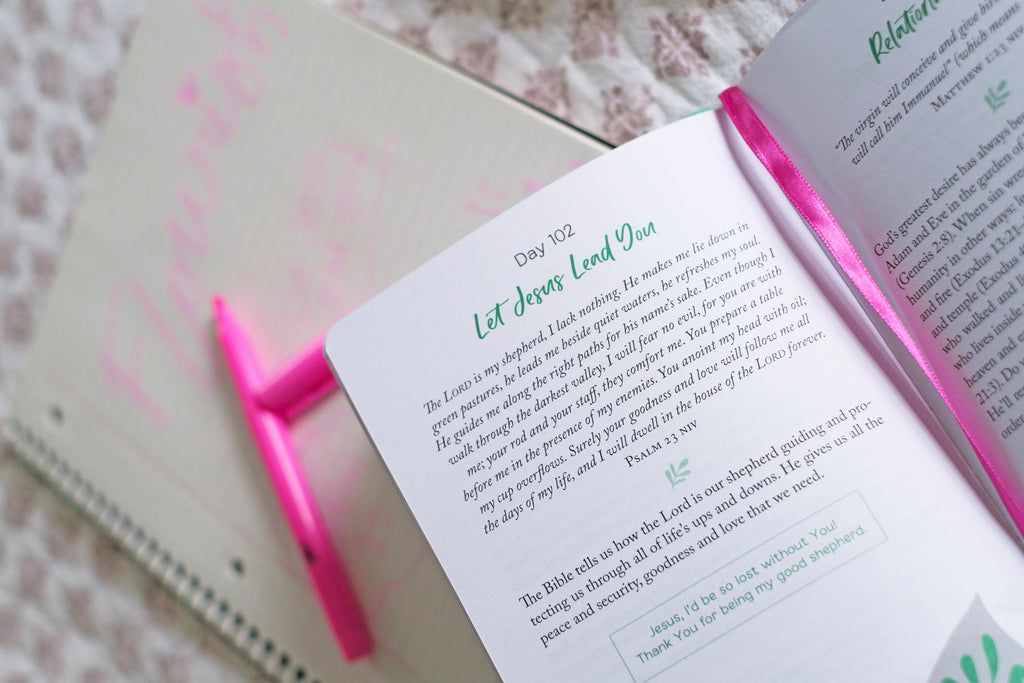 Flourish
Day 102
Let Jesus Lead You
The LORD is my shepherd, I lack nothing. He makes me lie down in
green pastures, he leads me beside quiet waters, he refreshes my soul.
He guides me along the right paths for his name's sake. Even though I
walk through the darkest valley, I will fear no evil, for you are with
me; your rod and your staff, they comfort me. You prepare a table
before me in the presence of my enemies. You anoint my head with oil;
my cup overflows. Surely your goodness and love will follow me all
the days of my life, and I will dwell in the house of the LORD forever.
PSALM 23 NIV
The Bible tells us how the Lord is our shepherd guiding and pro-
tecting us through all of life's ups and downs. He gives us all the
peace and security, goodness and love that we need.
Jesus, I'd be so lost without You!
Thank You for being my good shepherd.
"The virgin will conceive and give birth
will call him Immanuel" (which means
MATTHEW 1:23 NIV
God's greatest desire has always be
Adam and Eve in the garden of
(Genesis 2:8). When sin wre
humanity in other ways: le
and fire (Exodus 13:21–
and temple (Exodus
who walked and
who lives inside
heaven and e
21:3). Do
He'll re